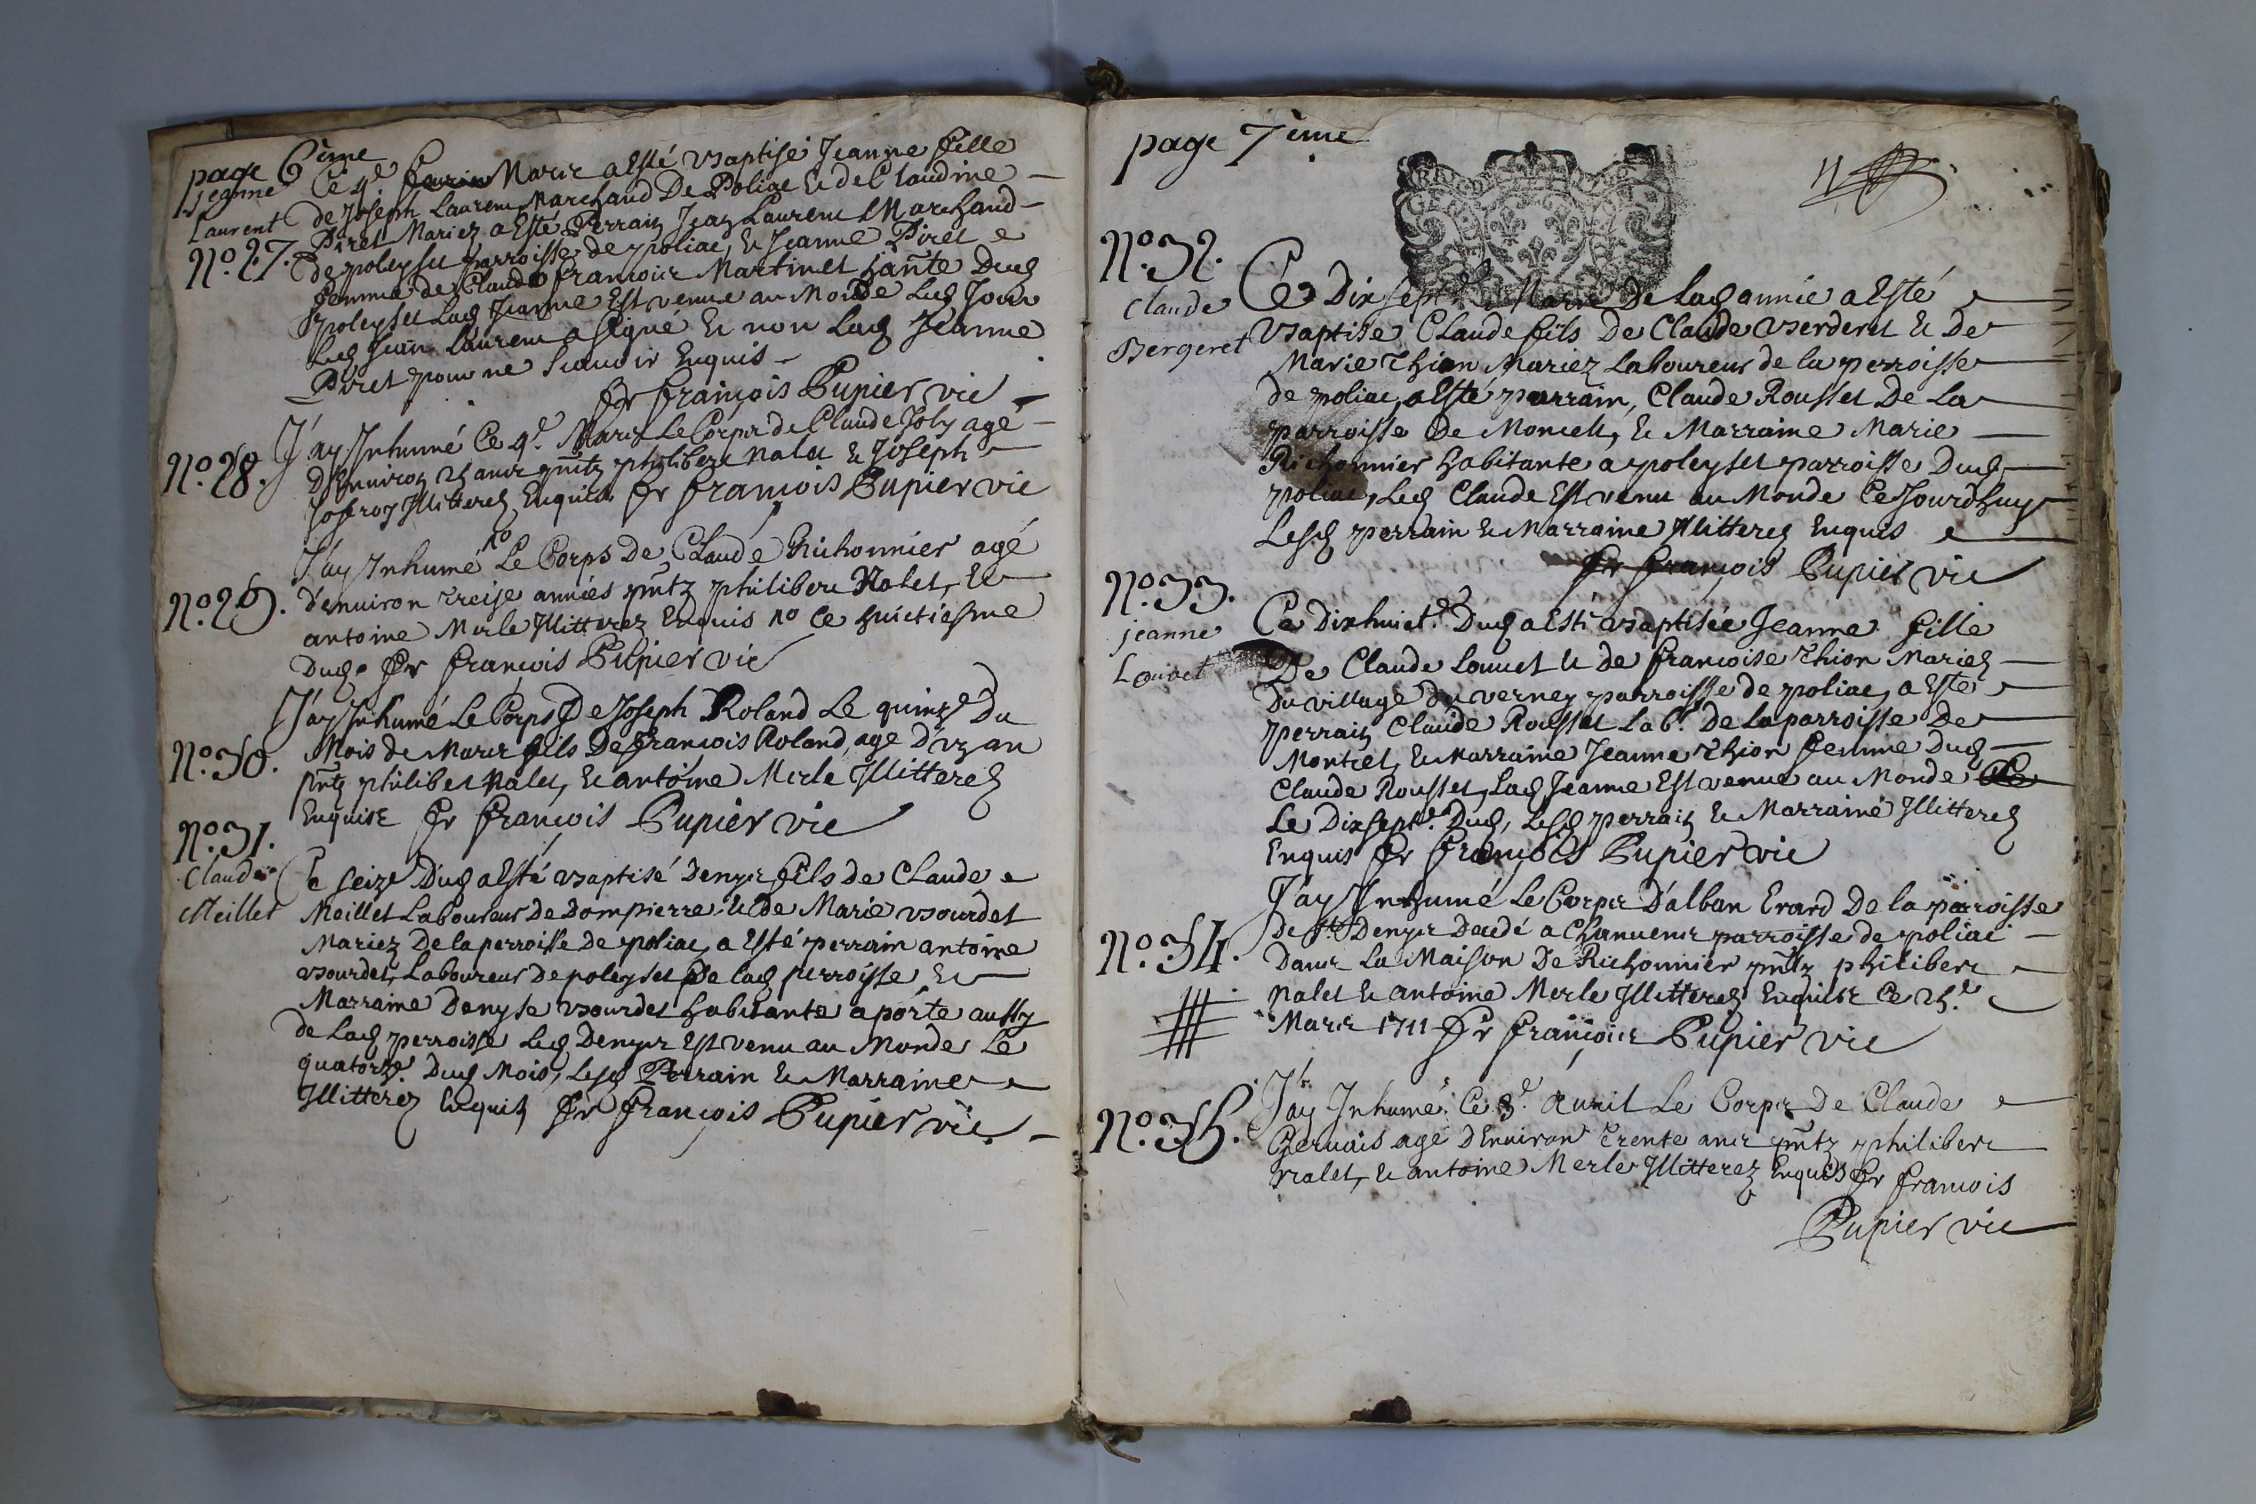 page 6ème
jeanne
Laurent
N.o 27.
Ce 4e Marsz a Esté Baptisé Jeanne fille
de Joseph Laurent Marchand De Poliac & de Claudine
Piret Mariez a Esté Perrain Jean Laurent Marchand
de poleyset parroisse de poliac, & Jeanne Piret
femme de Claude françois Martinet hante Dud
poleyset Lad Jeanne Est venue au Monde Led Jour
Led Jean Laurent a signé & non Lad Jeanne
Piret pour ne scauoir Enquis
fr françois Pupier vic
N.o 28.
J'ay Inhumé Ce 4e Mars Le Corps de Claude Joly agé
D'Enuiron ans pntz philibert Nalet & Joseph
Jofroy Illitterez Enquis fr françois Pupier vic
N.o 29.
J'ay Inhumé no Le Corps De Claude Richonnier agé
d'enuiron treise années pntz philibert Nalet, &
antoine Merle Illitterez Enquis no Ce huictiesme
Dud. fr françois Pupier vic
N.o 30.
J'ay Inhumé Le Corps De Joseph Roland Le quinze Du
Mois de Mars fils De françois Roland, agé D'vn an
pntz philibet Nalet, & antoine Merle Illitterez
Enquis fr françois Pupier vic
N.o 31.
Claude
Meillet
Ce seize Dud a Esté Baptisé Denys fils de Claude
Meillet Laboureur De Dompierre & De Marie Bourdet
Mariez De la perroisse de poliac, a Esté perrain antoine
Bourdet, Laboureur De poleyset De lad perroisse &
Marraine Denyse Bourdet habitante a porte aussy
de Lad perroisse Led Denys Est venu au Monde Le
quatorze Dud Mois, Lesd Perrain & Marraine
Illitterez Enquis fr françois Pupier vic
page 7ème
11
N.o 32.
claude
Bergeret
Ce Dix sept Mars De lad année a Esté
Baptise Claude fils De Claude Berderet & De
Marie Thion Mariez Laboureur de la perroisse
de poliac, a Esté parrain, Claude Rousset De La
parroisse De Moncel, & Marraine Marie
Richonnier habitante a poleyset parroisse Dud
poliac, Led Claude Est venu au Monde Cejourd'huy
Lesd perrain & Marraine Illitterez Enquis
fr françois Pupier vic
N.o 33.
jeanne
Louuet
Ce Dixhuict. Dud a Esté Baptisée Jeanne fille
De Claude Louuet & de françoise Thion Mariez
Du village du verney parroisse de poliac, a Esté
perrain Claude Rousset Labr. De la parroisse De
Montcel, & Marraine Jeanne Thion femme Dud
Claude Rousset, Lad Jeanne Est venue au Monde
Le Dix sept. Dud, Lesd perrain & Marraine Illitterez
Enquis fr françois Pupier vic
N.o 34.
J'ay Inhumé Le Corps D'alban Erard De la parroisse
de St Denys Decedé a parroisse de poliac
Dans La Maison De Richonnier pntz philibert
Nalet & antoine Merle Illitterez Enquis Ce
Mars 1711 fr françois Pupier vic
N.o 35.
J'ay Inhumé Ce 3e auril Le Corps De Claude
Geruais agé D'Enuiron trente ans pntz philibert
Nalet, & antoine Merle Illitterez Enquis fr françois
Pupier vic